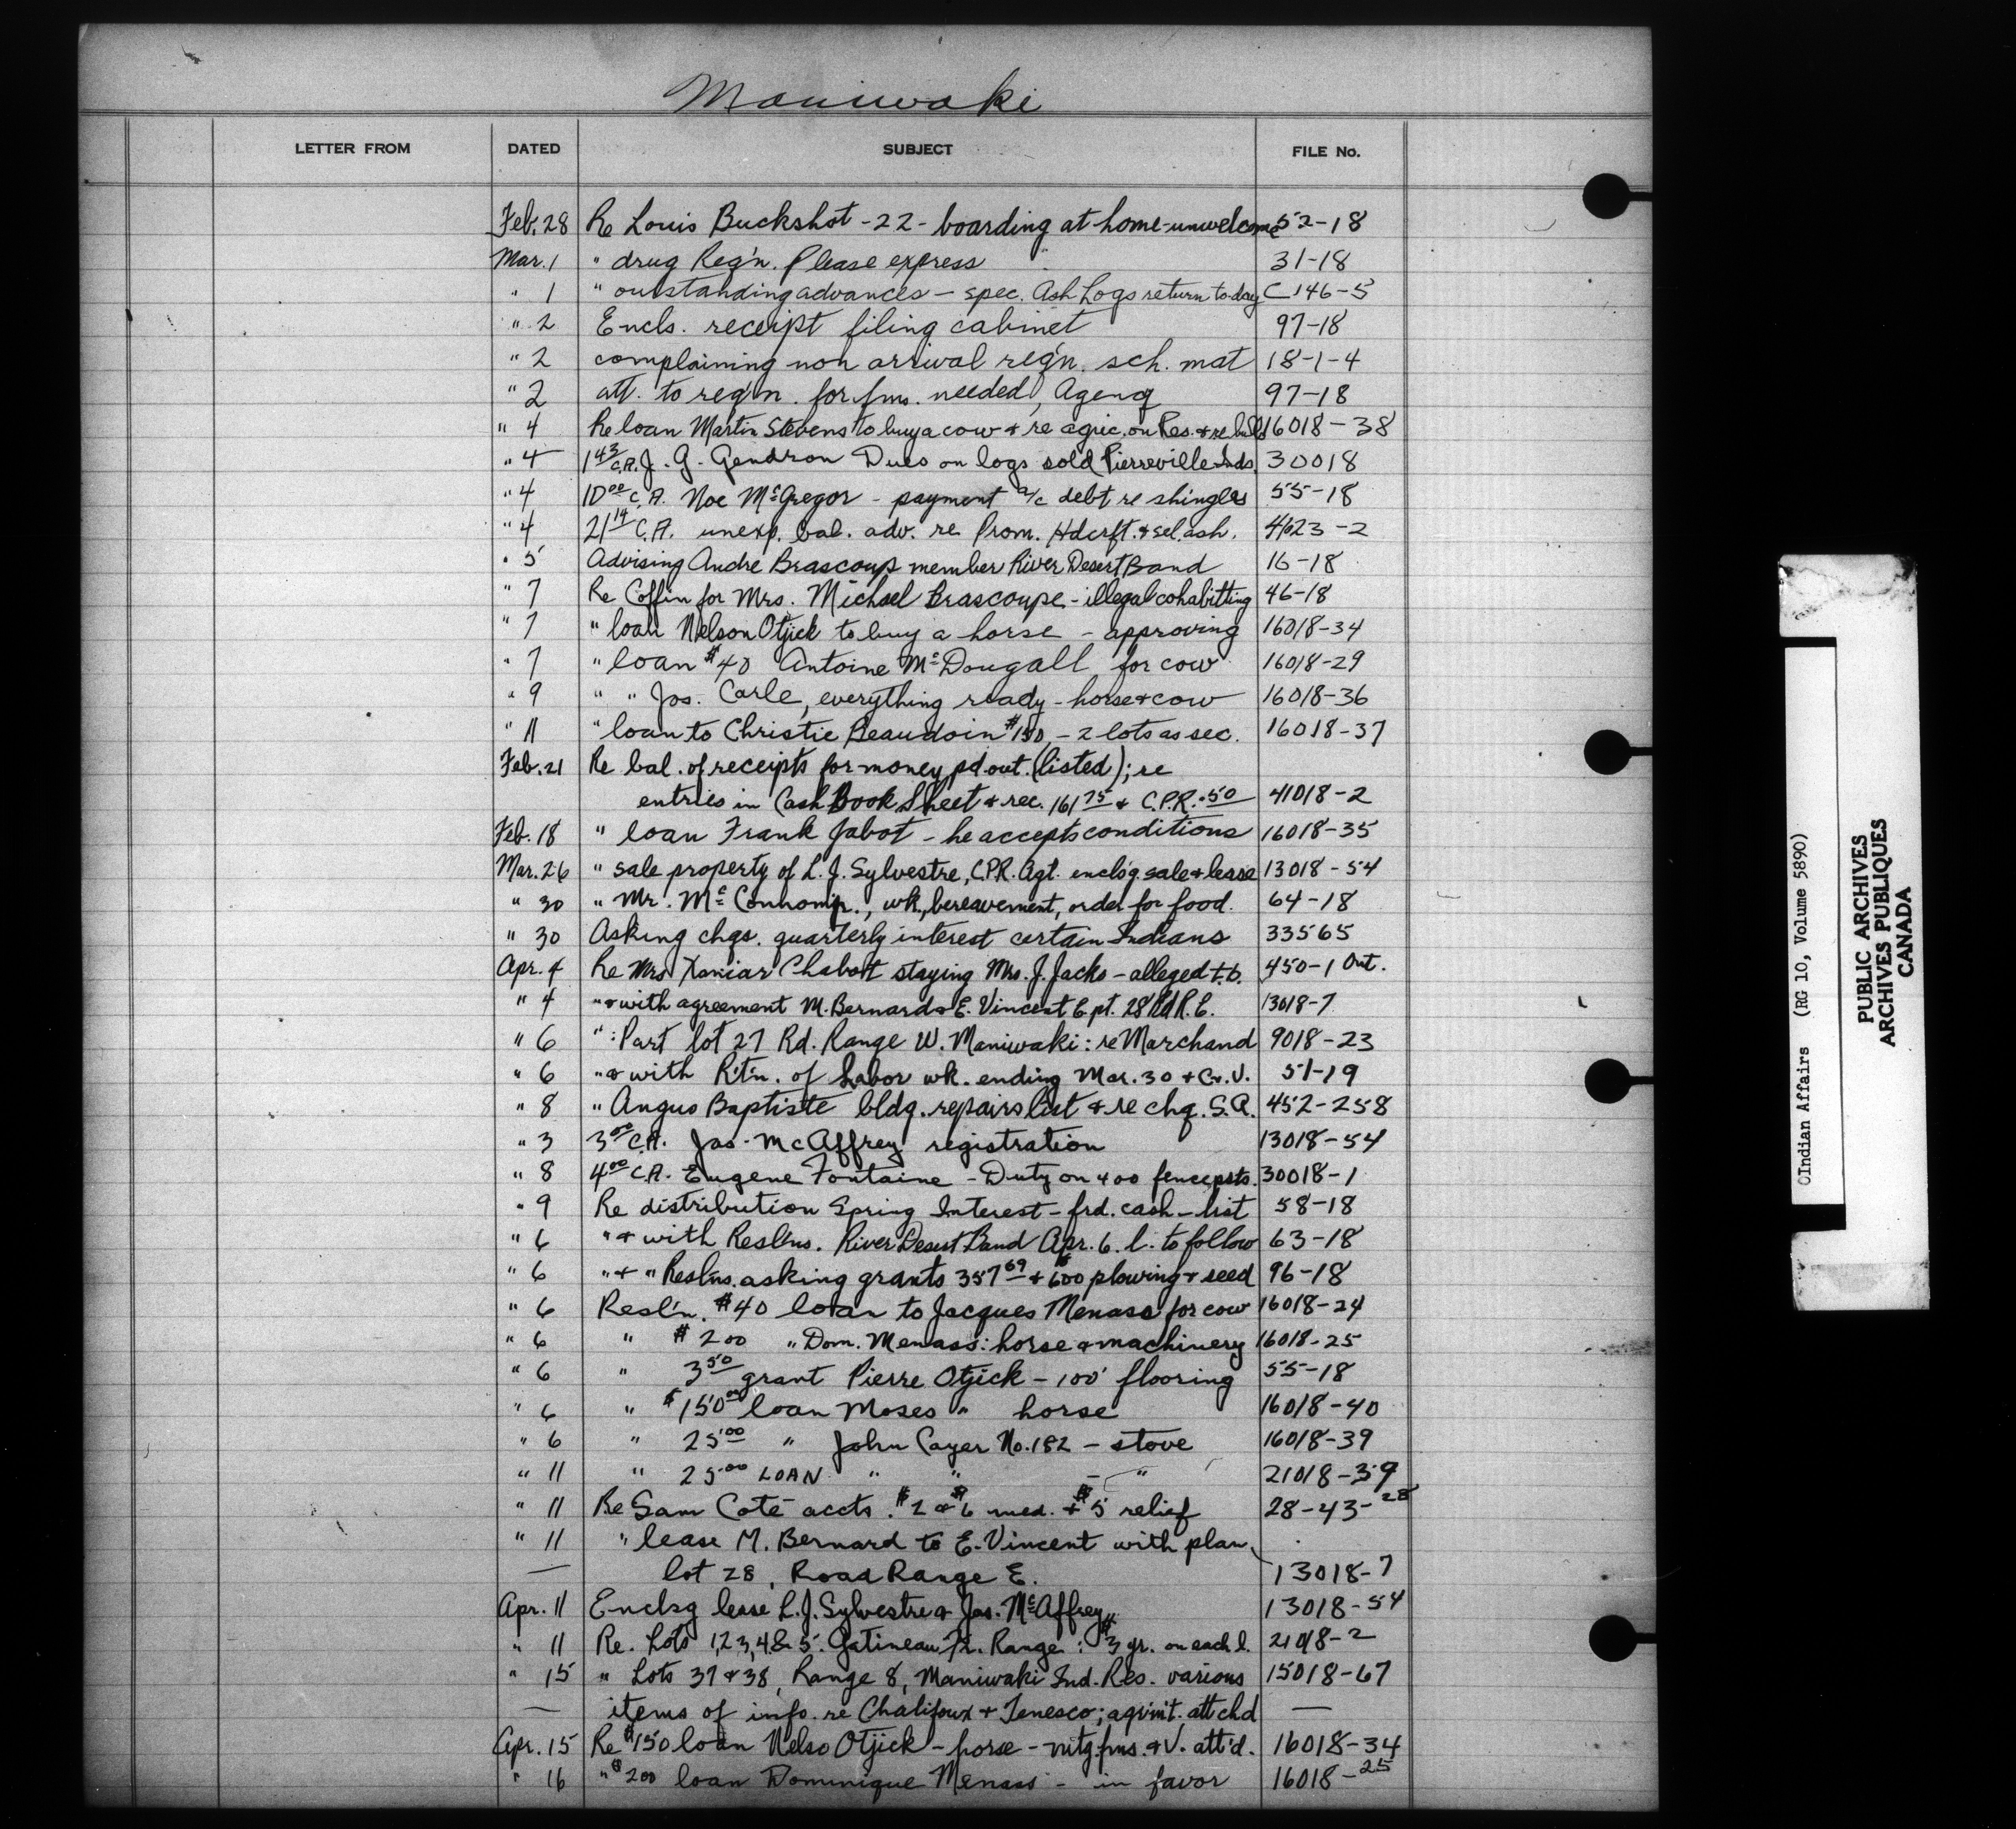 Maniwaki
LETTER FROM DATED SUBJECT FILE No.
Feb. 28 Re Louis Buckshot - 22 - boarding at home - unwelcome 52-18
Mar. 1 " drug Req'n. Please express 31-18
" 1 " outstanding advances - spec. Ash Logs return to-day C 146-5
" 2 Encls. receipt filing cabinet 97-18
" 2 complaining non arrival req'n. sch. mat 18-1-4
" 2 att. to req'n. for fms. needed, Agency 97-18
" 4 Re loan Martin Stevens to buy a cow & re agric. on Res. & re bull 16018-38
" 4 1 43 C.A. J. G. Gendron Dues on logs sold Pierreville Inds. 30018
" 4 10 00 C.A. Noe McGregor - payment a/c debt re shingles 55-18
" 4 21 14 C.A. unexp. bal. adv. re Prom. Hdcrft. & sel. ash. 4023-2
" 5 Advising Andre Brascoup member River Desert Band 16-18
" 7 Re Coffin for Mrs. Michael Brascoupe - illegal cohabitting 46-18
" 7 " loan Nelson Otjick to buy a horse - approving 16018-34
" 7 " loan $40 Antoine McDougall for cow 16018-29
" 9 " " Jos. Carle, everything ready - horse & cow 16018-36
" 11 " loan to Christie Beaudoin $150 - 2 lots as sec. 16018-37
Feb. 21 Re bal. of receipts for money pd out. (listed); re
entries in Cash Book Sheet & rec. 161 75 & C.P.R. .50 41018-2
Feb. 18 " loan Frank Jabot - he accepts conditions 16018-35
Mar. 26 " sale property of L. J. Sylvestre, C.P.R. Agt. enclsg. sale & lease 13018-54
" 30 " Mr. wk., bereavement, order for food. 64-18
" 30 Asking chgs. quarterly interest certain Indians 33565
Apr. 4 Re Mrs Xaniar Chabott staying Mrs. J. Jacko - alleged t.b. 450-1 Ont.
" 4 " & with agreement M. Bernard & E. Vincent E pt. 28 Rd R. E. 13018-7
" 6 " : Part lot 27 Rd. Range W. Maniwaki: re Marchand 9018-23
" 6 " & with R't'n. of Labor wk. ending Mar. 30 & Cr. V. 51-19
" 8 " Angus Baptiste bldg. repairs list & re chq. S.A. 452-258
" 3 3 00 C.A. Jas. McAffrey registration 13018-54
" 8 4 00 C.A. Eugene Fontaine - Duty on 400 fenceposts. 30018-1
" 9 Re distribution Spring Interest - frd. cash - list 58-18
" 6 " & with Resl'ns. River Desert Band Apr. 6. l. to follow 63-18
" 6 " & " Resl'ns. asking grants 357 69 & $600 plowing & seed 96-18
" 6 Resl'n. $40 loan to Jacques Menass for cow 16018-24
" 6 " $200 " Dom. Menass: horse & machinery 16018-25
" 6 " 3 50 grant Pierre Otjick - 100' flooring 55-18
" 6 " $150 00 loan Moses " horse 16018-40
" 6 " 25 00 " John Cayer No. 182 - stove 16018-39
" 11 " 25 00 LOAN " " - " 21018-39
" 11 Re Sam Coté accts. $2 & $6 med. + $5 relief 28-43-28
" 11 " lease M. Bernard to E. Vincent with plan,
— lot 28, Road Range E. 13018-7
Apr. 11 Enclsg lease L. J. Sylvestre & Jas. McAffrey 13018-54
" 11 Re. Lots 1, 2, 3, 4, & 5. Gatineau Fr. Range: $3 yr. on each l. 21018-2
" 15 " Lots 37 & 38, Range 8, Maniwaki Ind. Res. various 15018-67
— items of info. re Chalifoux & Tenesco; agr'm't. attchd —
Apr. 15 Re $150 loan Nelso Otjick - horse - mtg. fms. & V. att'd. 16018-34
" 16 " $200 loan Dominique Menass - in favor 16018-25
Indian Affairs (RG 10, Volume 5890)
PUBLIC ARCHIVES
ARCHIVES PUBLIQUES
CANADA